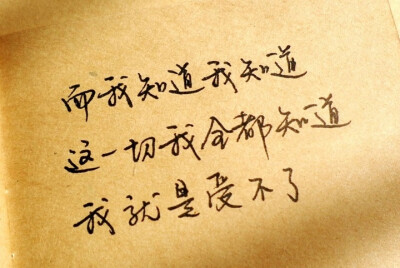 而我知道我知道
这一切我全都知道
我就是受不了